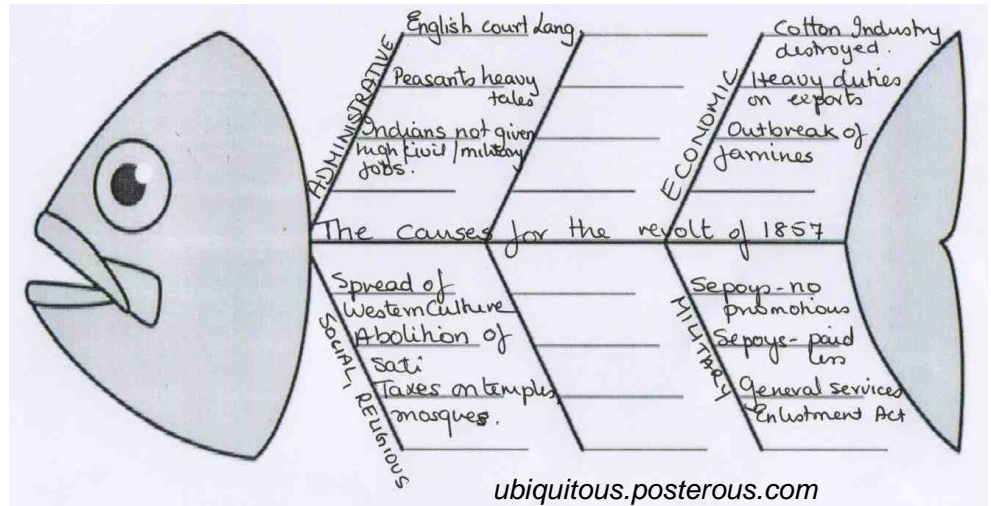 ADMINISTRATIVE
English court Lang
Peasants heavy
tales
Indians not given
high civil / military
jobs.
ECONOMIC
Cotton Industry
destroyed.
Heavy duties
on exports
Outbreak of
famines
The causes for the revolt of 1857
SOCIAL, RELIGIOUS
Spread of
Western Culture
Abolition of
Sati
Taxes on temples
mosques.
MILITARY
Sepoys - no
promotions
Sepoys - paid
less
General services
Enlistment Act
ubiquitous.posterous.com